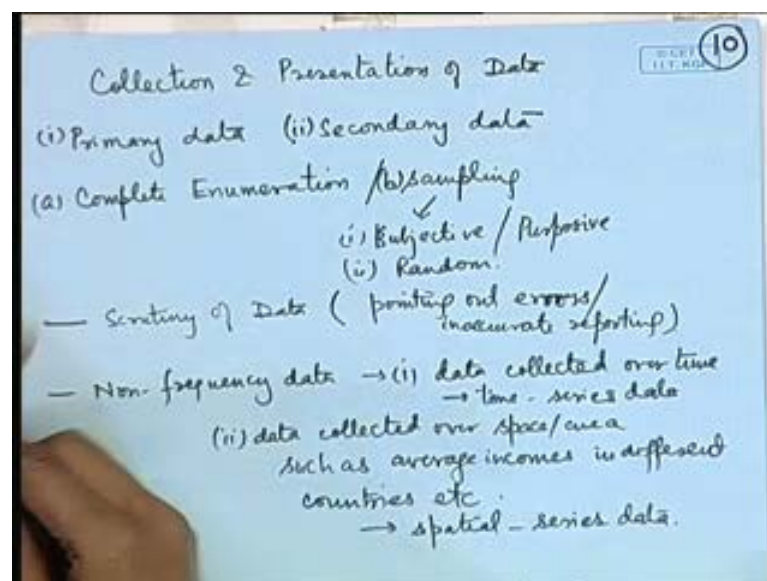 Collection & Presentation of Data
10
© CET
I.I.T. KGP
(i) Primary data (ii) Secondary data
(a) Complete Enumeration /(b) sampling
(i) Subjective / Purposive
(ii) Random.
— Scrutiny of Data ( pointing out errors/
inaccurate reporting)
— Non-frequency data → (i) data collected over time
→ time-series data
(ii) data collected over space/area
such as average incomes in different
countries etc.
→ spatial-series data.